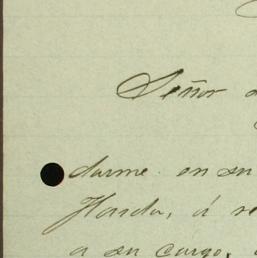 Señor
darme en su
Honda, á
a su cargo,